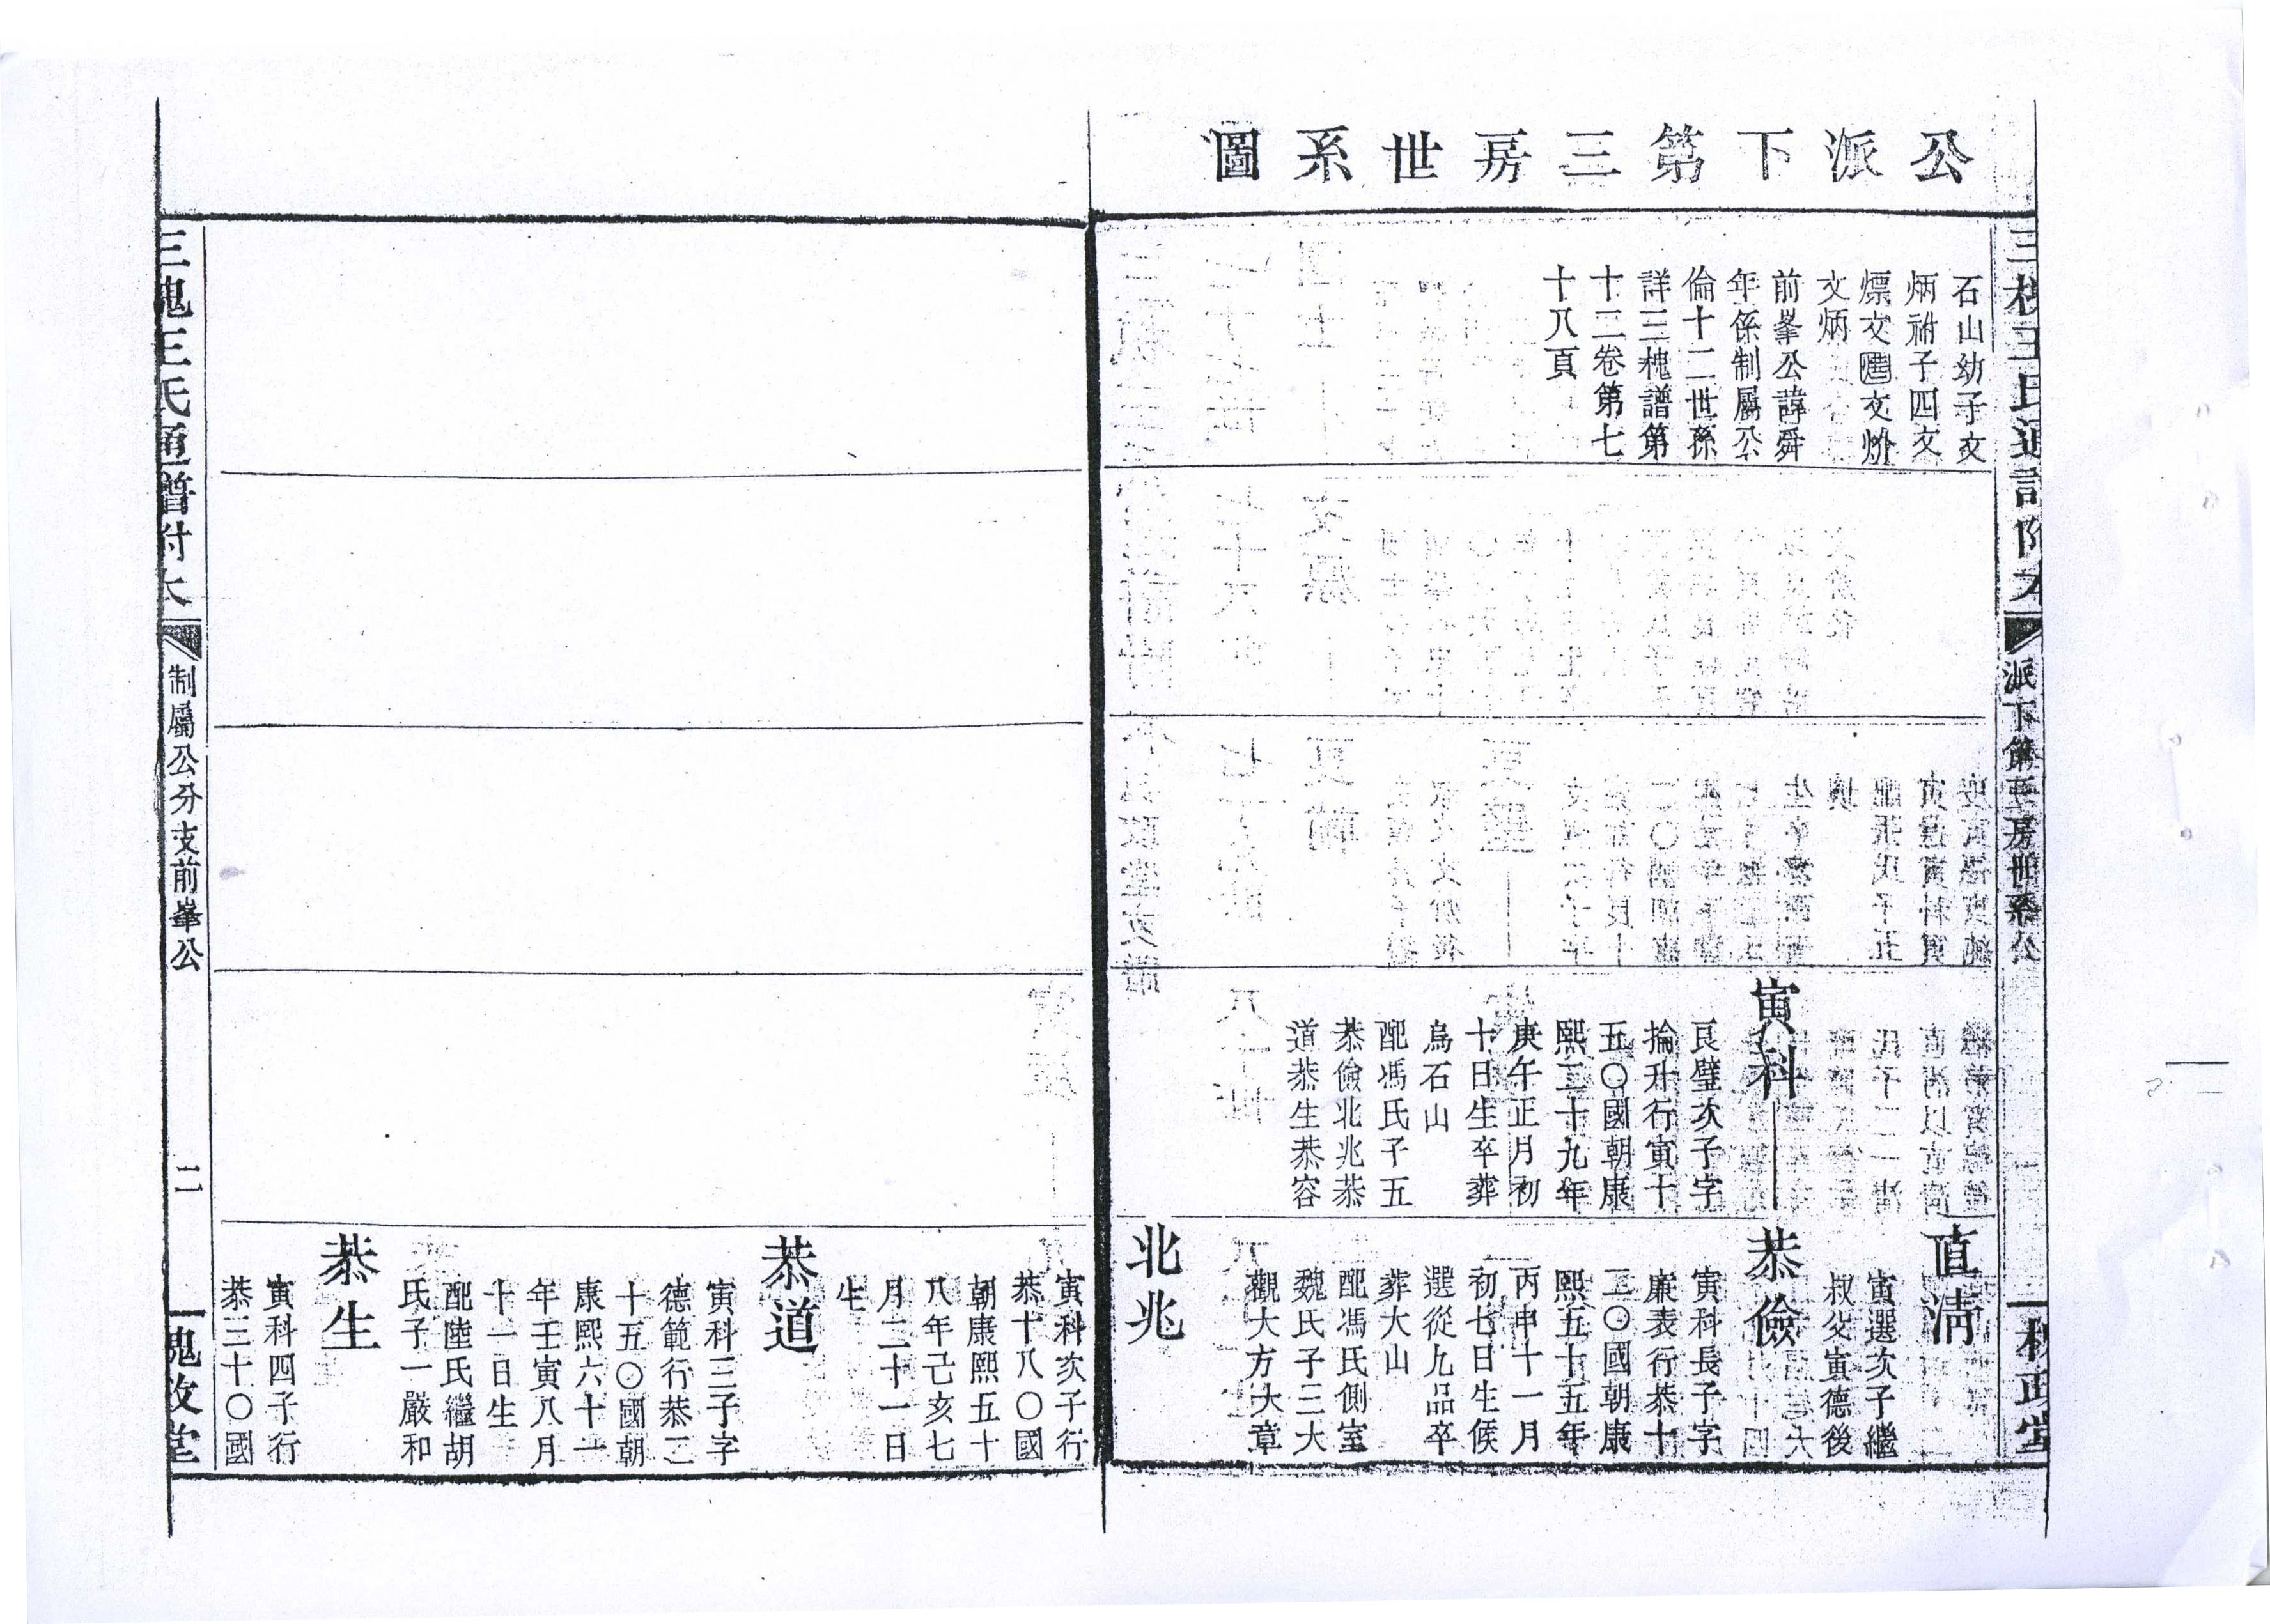 公派下第三房世系圖
三槐王氏通譜附本
派下第三房世系公
槐政堂
石山幼子文
炳祔子四文
熛文
文炳
前峯公諱舜
年係制屬公
倫十二世孫
詳三槐譜第
十二卷第七
十八頁
寅科
良璧次子字
掄升行寅十
五〇國朝康
熙二十九年
庚午正月初
十日生卒葬
烏石山
配馮氏子五
恭儉北兆恭
道恭生恭容
直淸
寅選次子繼
叔父寅德後
恭儉
寅科長子字
廉表行恭十
二〇國朝康
熙五十五年
丙申十一月
初七日生候
選從九品卒
葬大山
配馮氏側室
魏氏子三大
觀大方大章
北兆
寅科次子行
恭十八〇國
朝康熙五十
八年己亥七
月二十一日
生
恭道
寅科三子字
德範行恭二
十五〇國朝
康熙六十一
年壬寅八月
十一日生
配陸氏繼胡
氏子一嚴和
恭生
寅科四子行
恭三十〇國
三槐王氏通譜附本
制屬公分支前峯公
二
槐政堂